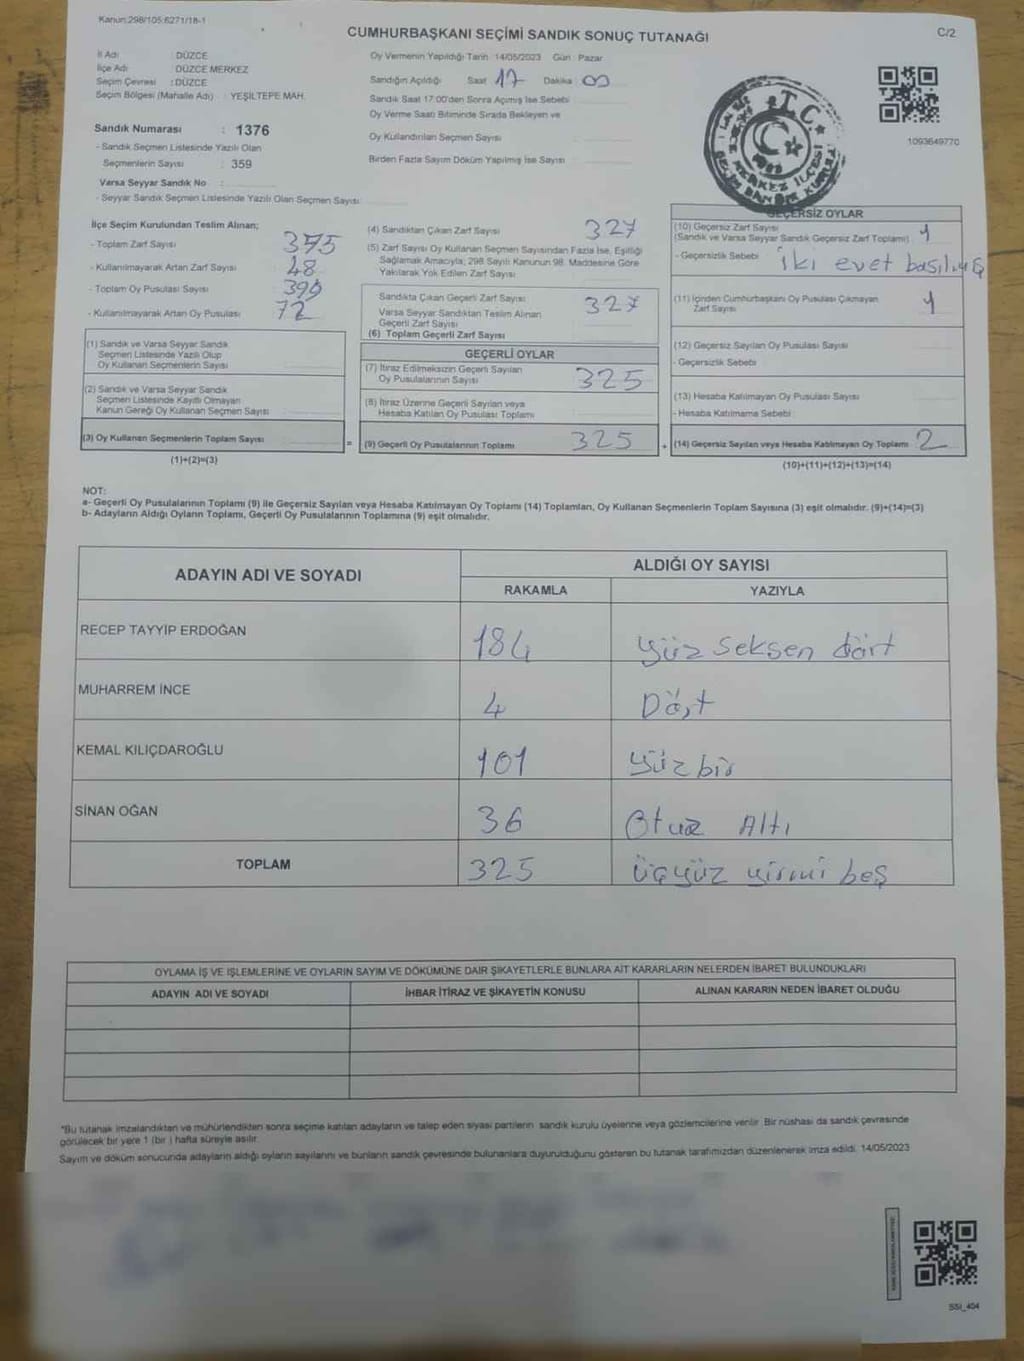 Kanun:298/105:6271/18-1
CUMHURBAŞKANI SEÇİMİ SANDIK SONUÇ TUTANAĞI
C/2
İl Adı : DÜZCE
İlçe Adı : DÜZCE MERKEZ
Seçim Çevresi : DÜZCE
Seçim Bölgesi (Mahalle Adı) : YEŞİLTEPE MAH.
Sandık Numarası : 1376
- Sandık Seçmen Listesinde Yazılı Olan
Seçmenlerin Sayısı : 359
Varsa Seyyar Sandık No :
- Seyyar Sandık Seçmen Listesinde Yazılı Olan Seçmen Sayısı
Oy Vermenin Yapıldığı Tarih 14/05/2023 Gün : Pazar
Sandığın Açıldığı Saat 17 Dakika 00
Sandık Saat 17:00'den Sonra Açımış İse Sebebi
Oy Verme Saati Bitiminde Sırada Bekleyen ve
Oy Kullandırılan Seçmen Sayısı
Birden Fazla Sayım Döküm Yapılmış İse Sayısı
T.C.
MERKEZ İLÇESİ
1093649770
İlçe Seçim Kurulundan Teslim Alınan;
- Toplam Zarf Sayısı 375
- Kullanılmayarak Artan Zarf Sayısı 48
- Toplam Oy Pusulası Sayısı 399
- Kullanılmayarak Artan Oy Pusulası 72
(1) Sandık ve Varsa Seyyar Sandık
Seçmen Listesinde Yazılı Olup
Oy Kullanan Seçmenlerin Sayısı
(2) Sandık ve Varsa Seyyar Sandık
Seçmen Listesinde Kayıtlı Olmayan
Kanun Gereği Oy Kullanan Seçmen Sayısı
(3) Oy Kullanan Seçmenlerin Toplam Sayısı
(1)+(2)=(3)
(4) Sandıktan Çıkan Zarf Sayısı 327
(5) Zarf Sayısı Oy Kullanan Seçmen Sayısından Fazla İse, Eşitliği
Sağlamak Amacıyla; 298 Sayılı Kanunun 98. Maddesine Göre
Yakılarak Yok Edilen Zarf Sayısı
Sandıkta Çıkan Geçerli Zarf Sayısı 327
Varsa Seyyar Sandıktan Teslim Alınan
Geçerli Zarf Sayısı
(6) Toplam Geçerli Zarf Sayısı
GEÇERLİ OYLAR
(7) İtiraz Edilmeksizin Geçerli Sayılan
Oy Pusulalarının Sayısı 325
(8) İtiraz Üzerine Geçerli Sayılan veya
Hesaba Katılan Oy Pusulası Toplamı
= (9) Geçerli Oy Pusulalarının Toplamı 325
GEÇERSİZ OYLAR
(10) Geçersiz Zarf Sayısı
(Sandık ve Varsa Seyyar Sandık Geçersiz Zarf Toplamı) 1
- Geçersizlik Sebebi iki evet basılmış
(11) İçinden Cumhurbaşkanı Oy Pusulası Çıkmayan
Zarf Sayısı 1
(12) Geçersiz Sayılan Oy Pusulası Sayısı
- Geçersizlik Sebebi
(13) Hesaba Katılmayan Oy Pusulası Sayısı
- Hesaba Katılmama Sebebi :
+ (14) Geçersiz Sayılan veya Hesaba Katılmayan Oy Toplamı 2
(10)+(11)+(12)+(13)=(14)
NOT:
a- Geçerli Oy Pusulalarının Toplamı (9) ile Geçersiz Sayılan veya Hesaba Katılmayan Oy Toplamı (14) Toplamları, Oy Kullanan Seçmenlerin Toplam Sayısına (3) eşit olmalıdır. (9)+(14)=(3)
b- Adayların Aldığı Oyların Toplamı, Geçerli Oy Pusulalarının Toplamına (9) eşit olmalıdır.
ADAYIN ADI VE SOYADI ALDIĞI OY SAYISI
RAKAMLA YAZIYLA
RECEP TAYYİP ERDOĞAN 184 yüz seksen dört
MUHARREM İNCE 4 Dört
KEMAL KILIÇDAROĞLU 101 yüz bir
SİNAN OĞAN 36 Otuz Altı
TOPLAM 325 üçyüz yirmi beş
OYLAMA İŞ VE İŞLEMLERİNE VE OYLARIN SAYIM VE DÖKÜMÜNE DAİR ŞİKAYETLERLE BUNLARA AİT KARARLARIN NELERDEN İBARET BULUNDUKLARI
ADAYIN ADI VE SOYADI İHBAR İTİRAZ VE ŞİKAYETİN KONUSU ALINAN KARARIN NEDEN İBARET OLDUĞU
*Bu tutanak imzalandıktan ve mühürlendikten sonra seçime katılan adayların ve talep eden siyasi partilerin sandık kurulu üyelerine veya gözlemcilerine verilir. Bir nüshası da sandık çevresinde
görülecek bir yere 1 (bir ) hafta süreyle asılır.
Sayım ve döküm sonucunda adayların aldığı oyların sayılarını ve bunların sandık çevresinde bulunanlara duyurulduğunu gösteren bu tutanak tarafımızdan düzenlenerek imza edildi. 14/05/2023
SSI_404